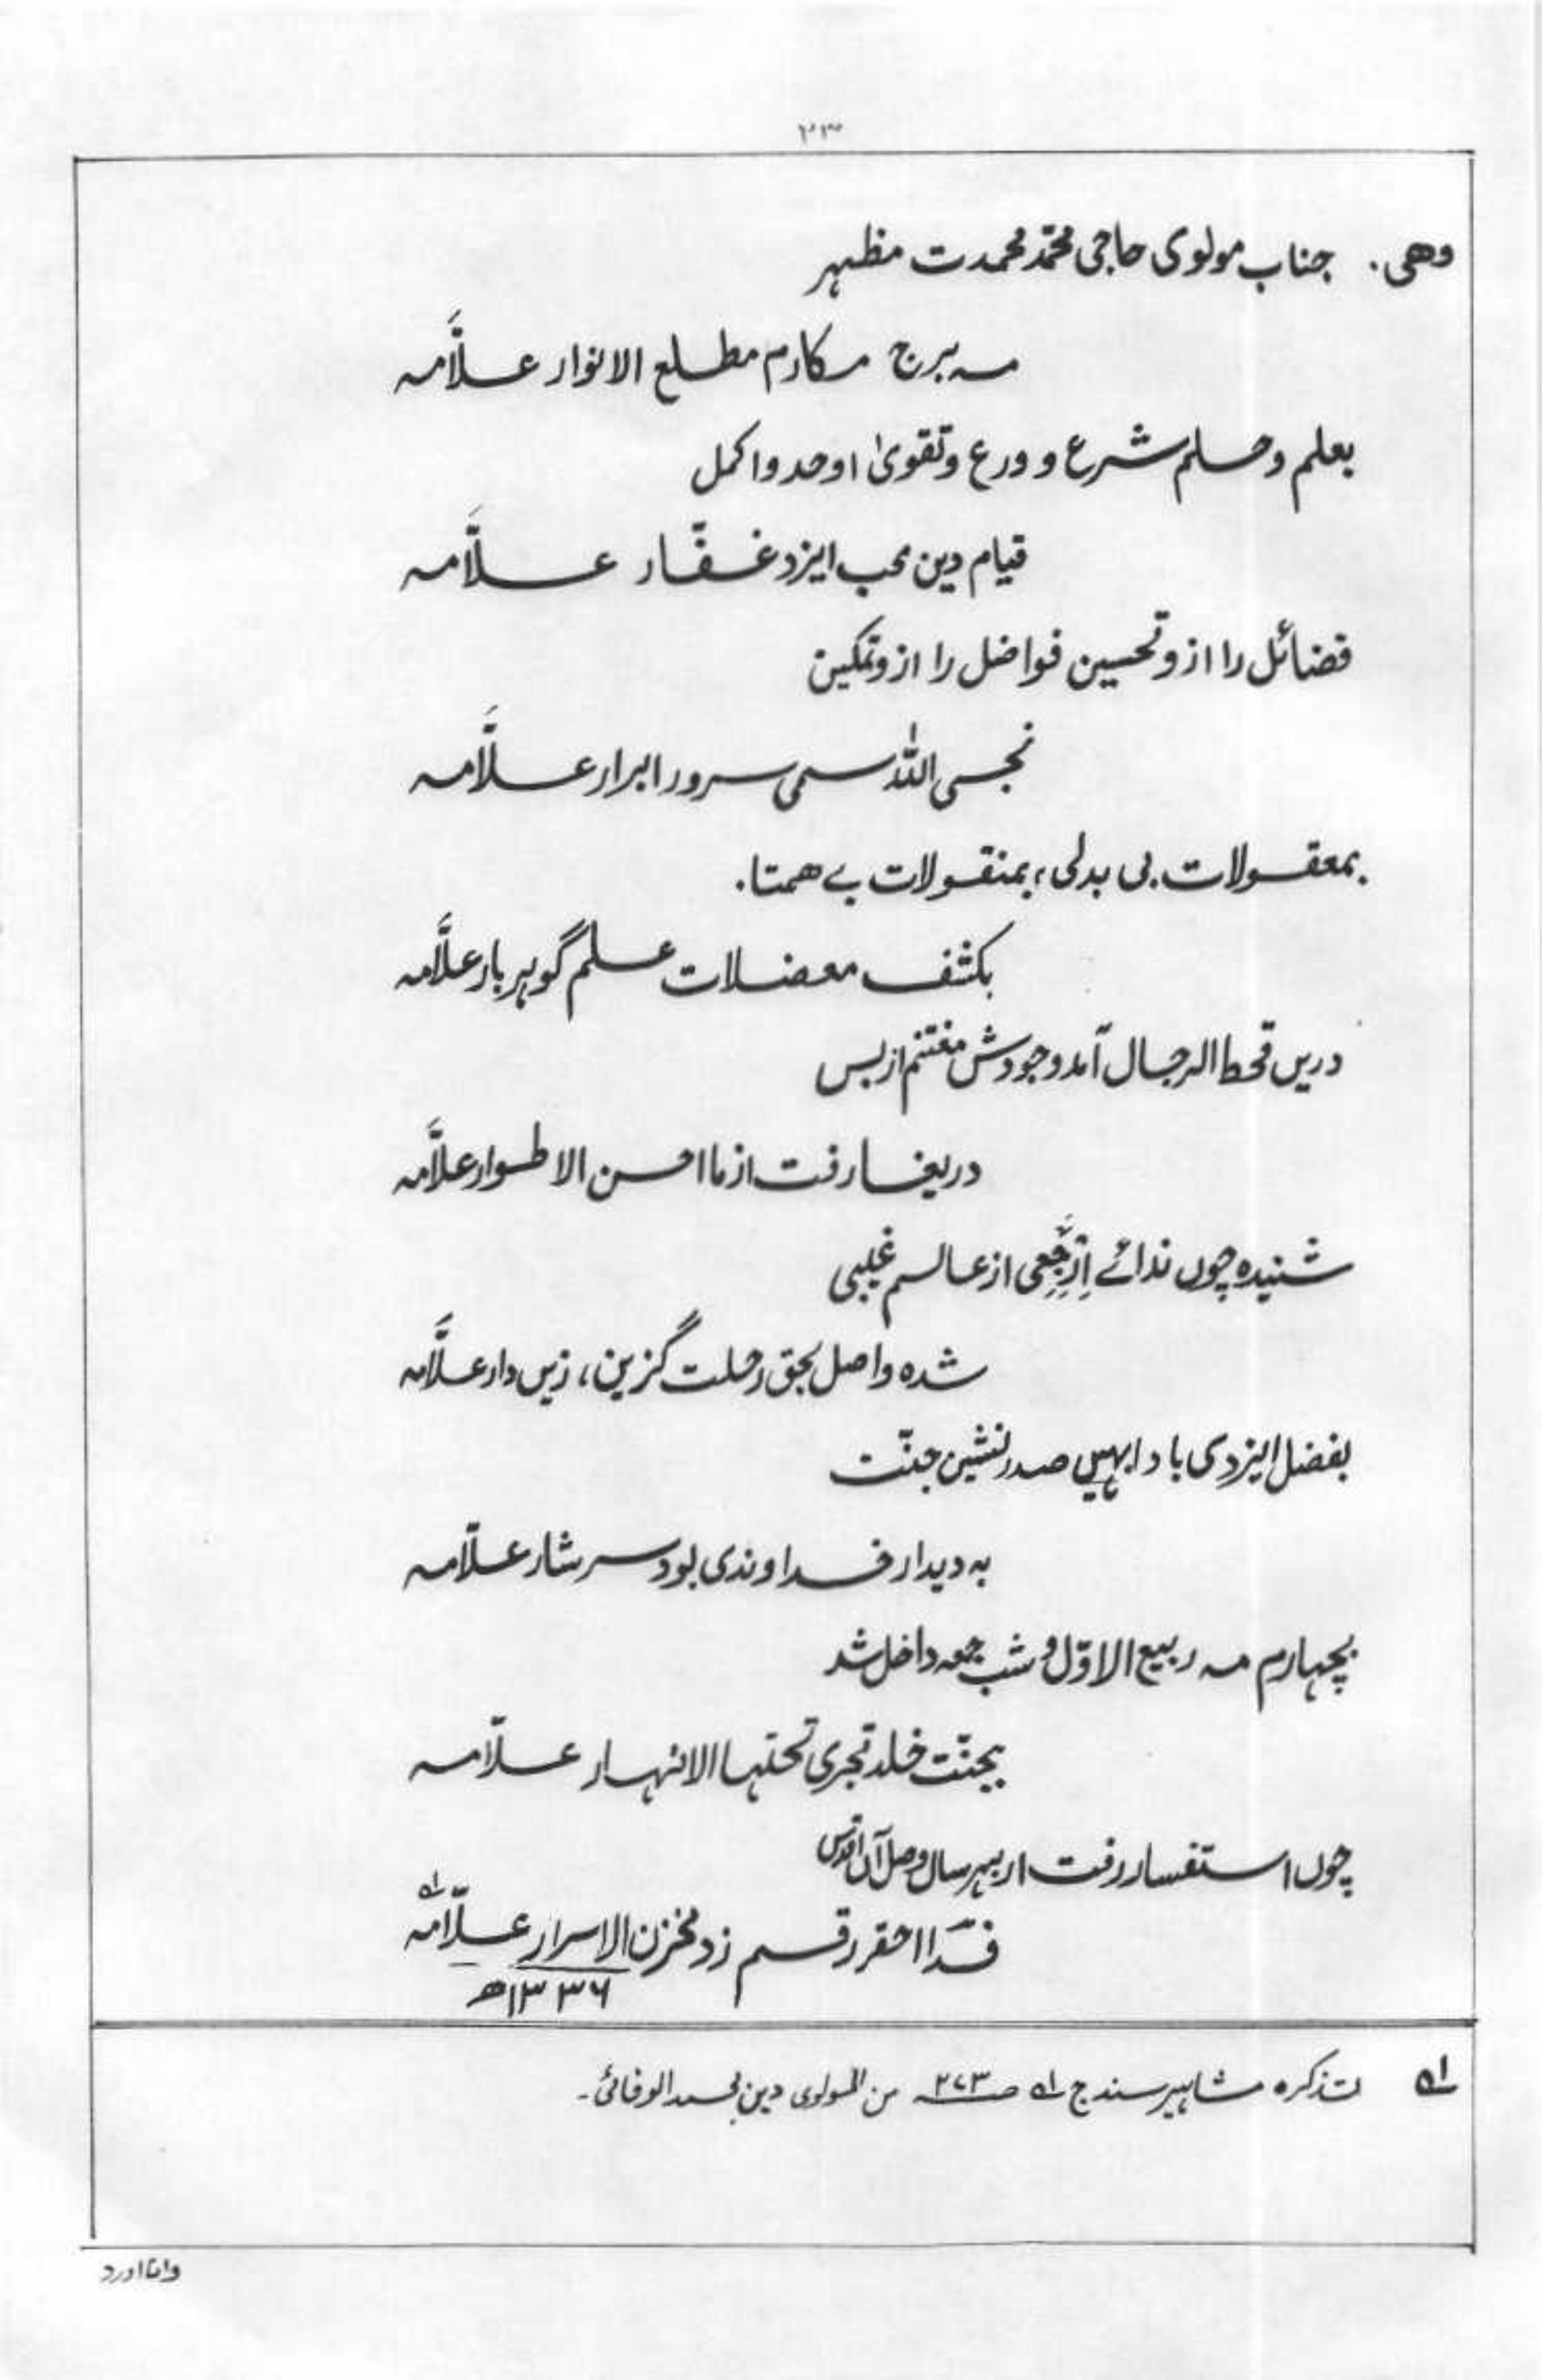 ۲۳
وهی. جناب مولوی حاجی محمّد محمدت مظہر
مہ برج مکارم مطلع الانوار علَّامہ
بعلم وحلم شرع و ورع وتقویٰ اوحد واکمل
قیام دین محب ایزد غفّار علَّامہ
فضائل را ازو تحسین فواضل را ازو تمکین
نجی اللہ سمی سرور ابرار علَّامہ
بمعقولات بی بدلی، بمنقولات بے همتا.
بکشف معضلات علم گوہر بار علَّامہ
دریں قحط الرجال آمد وجودش مغتنم از بس
دریغا رفت از ما احسن الاطوار علَّامہ
شنیدہ چوں ندائے اِرْجِعِی از عالم غیبی
شدہ واصل بحق رحلت گزین، زیں دار علَّامہ
بفضل ایزدی باد صدر نشین جنّت
بہ دیدار خداوندی بود سرشار علّامہ
بچہارم مہ ربیع الاوّل و شب جمعہ داخل شد
بجنّت خلد تجری تحتہا الانہار علّامہ
چوں استفسار رفت از بہر سال وصل آں اقدس
احقر رقم زد مخزن الاسرار علّامہ ؎۱
۱۳۳۶ھ
؎۱ تذکرہ مشاہیر سندج ؎۱ صـ ۲۷۳ من المولوی دین محمد الوفائی۔
وانا اورد